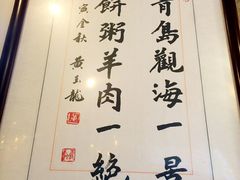 青島觀海一景
餅粥羊肉一絕
寅金秋 黄玉龍